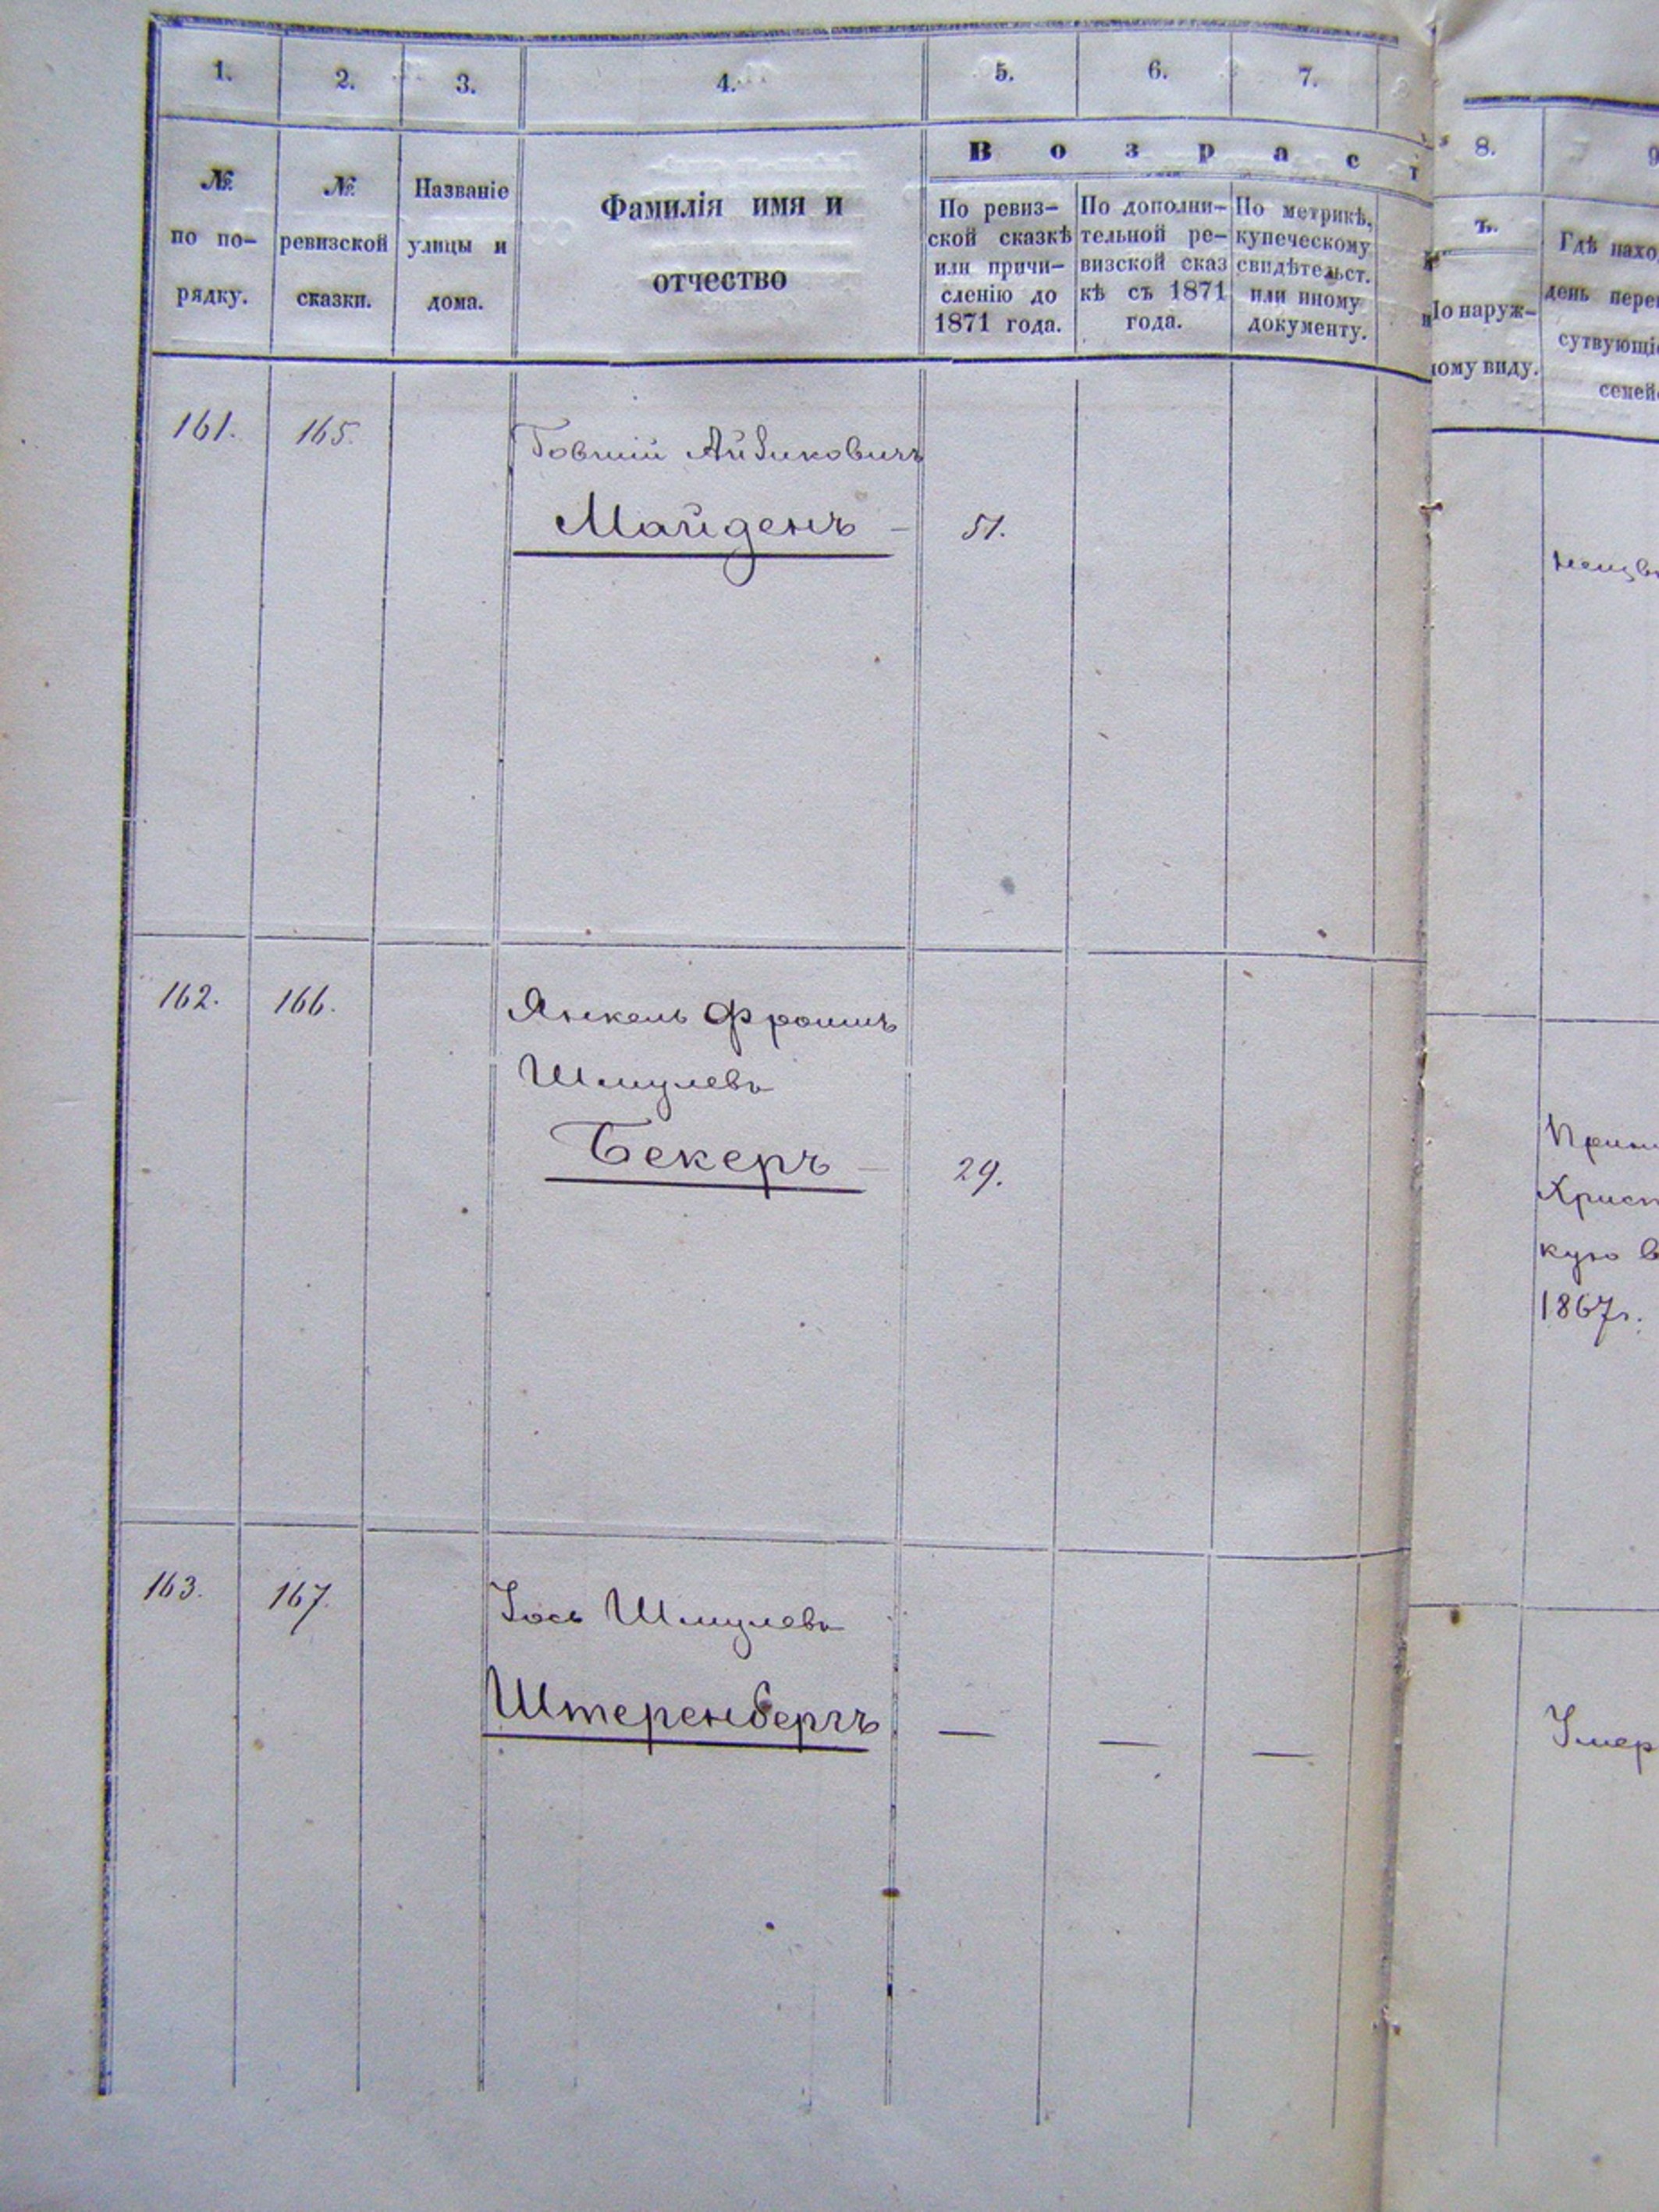 1. 2. 3. 4. 5. 6. 7.
№ по по-
рядку.
№ ревизской
сказки.
Названіе
улицы и
дома.
Фамилія имя и
отчество
Возраст
По ревиз-
ской сказкѣ
или причи-
сленію до
1871 года.
По дополни-
тельной ре-
визской сказ
кѣ съ 1871
года.
По метрикѣ,
купеческому
свидѣтельст.
или иному
документу.
8. 9
ъ.
По наруж-
ному виду.
Гдѣ нахо
день пере
сутвующі
семей
161. 165. Товшій Айзиковичъ
Майденъ - 51.
162. 166. Янкель Фроимъ
Шмулевъ
Бекеръ - 29.
Прин
Христ
кую в
1867г.
163. 167. Іось Шмулевъ
Штеренбергъ — — —
Умер